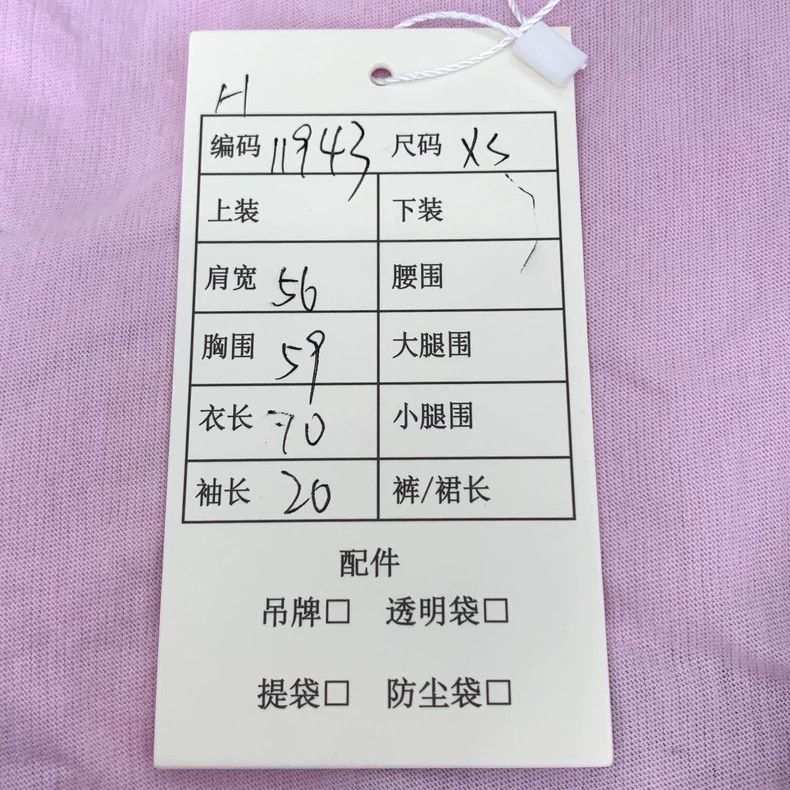 H
编码 11943 尺码 XS
上装 下装
肩宽 56 腰围
胸围 59 大腿围
衣长 70 小腿围
袖长 20 裤/裙长
配件
吊牌□ 透明袋□
提袋□ 防尘袋□